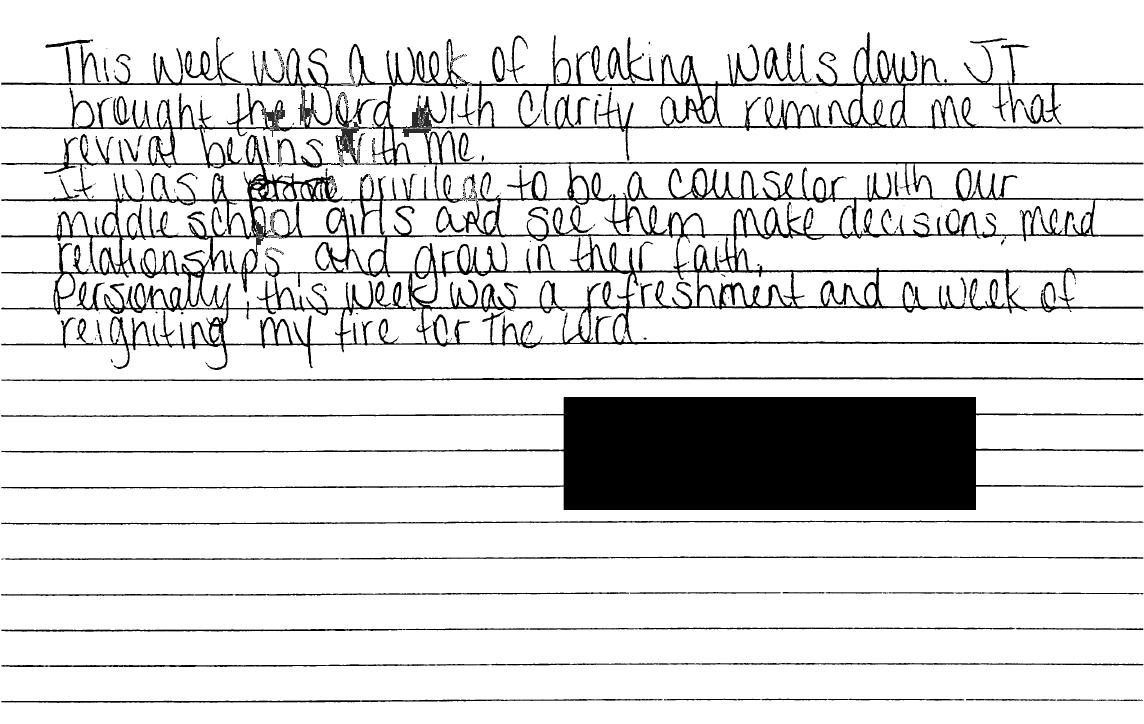 This week was a week of breaking walls down. JT
brought the Word with clarity and reminded me that
revival begins with me.
It was a privilege to be a counselor with our
middle school girls and see them make decisions, mend
relationships, and grow in their faith.
Personally, this week was a refreshment and a week of
reigniting my fire for the Lord.